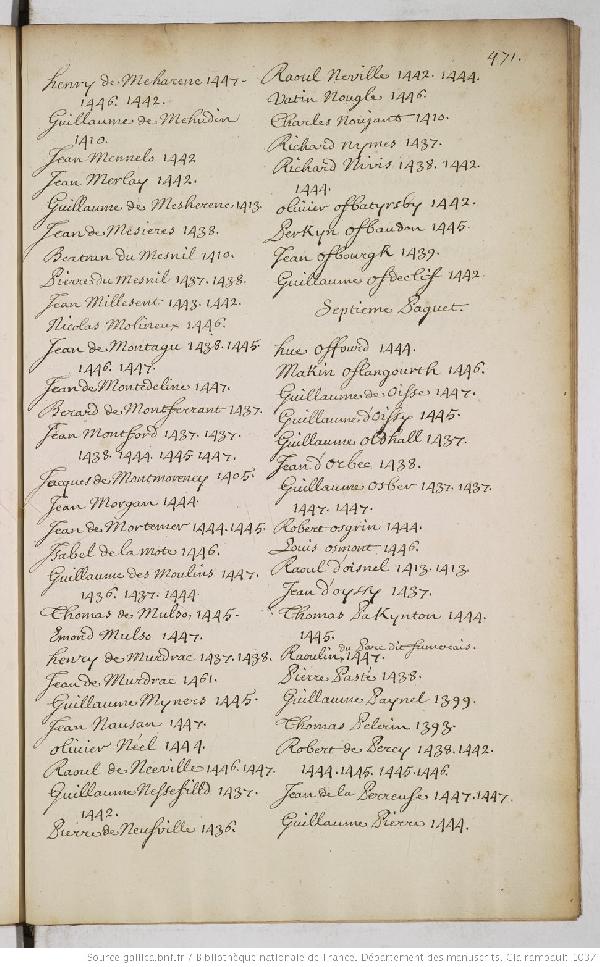 471.
henry de Meharene 1447.
1446. 1442.
Guillaume de Mehudin
1410.
Jean Mennels 1442
Jean Merlay 1442.
Guillaume de Mesherene 1413.
Jean de Mesieres 1438.
Bertran du Mesnil 1410.
Pierre du Mesnil 1437. 1438.
Jean Millesent 1443. 1442.
Nicolas Molineux 1446.
Jean de Montagu 1438. 1445.
1446. 1447.
Jean de Montedeline 1447.
Berard de Montferrant 1437.
Jean Montford 1437. 1437.
1438. 1444. 1445. 1447.
Jacques de Montmorency 1405.
Jean Morgan 1444.
Jean de Mortemer 1444. 1445.
Isabel de la mote 1446.
Guillaume des Moulins 1447.
1436. 1437. 1444.
Thomas de Mulso, 1445.
Emond Mulso 1447.
henry de Murdrac 1437. 1438.
Jean de Murdrac 1461.
Guillaume Myners 1445.
Jean Nausan 1447.
olivier Néel 1444.
Raoul de Neeville 1446. 1447.
Guillaume Nessefilld 1437.
1442.
Pierre de Neufville 1436.
Raoul Neville 1442. 1444.
Vatin Nougle 1446.
Charles Noujant 1410.
Richard nymes 1437.
Richard Nivis 1438. 1442.
1444.
olivier ofbatyrsby 1442.
Perkyn ofbaudon 1445.
Jean ofbourgk 1439.
Guillaume ofdeclif 1442.
Septieme Paquet.
hue offourd 1444.
Makin oflangourth 1446.
Guillaume de Oisse 1447.
Guillaume d'oissy 1445.
Guillaume oldhall 1437.
Jean d'orbec 1438.
Guillaume osber 1437. 1437.
1447. 1447.
Robert osgrin 1444.
Louis osmont 1446.
Raoul d'oisnel 1413. 1413.
Jean d'oyssy 1437.
Thomas Pakynton 1444.
1445.
Raoulin du Parc dit fumerais. 1447.
Pierre Pasté 1438.
Guillaume Paynel 1399.
Thomas Pelerin 1393.
Robert de Percy 1438. 1442.
1444. 1445. 1445. 1446.
Jean de la Perreuse 1447. 1447.
Guillaume Pierre 1444.
Source gallica.bnf.fr / Bibliothèque nationale de France. Département des manuscrits. Clairambault 1037